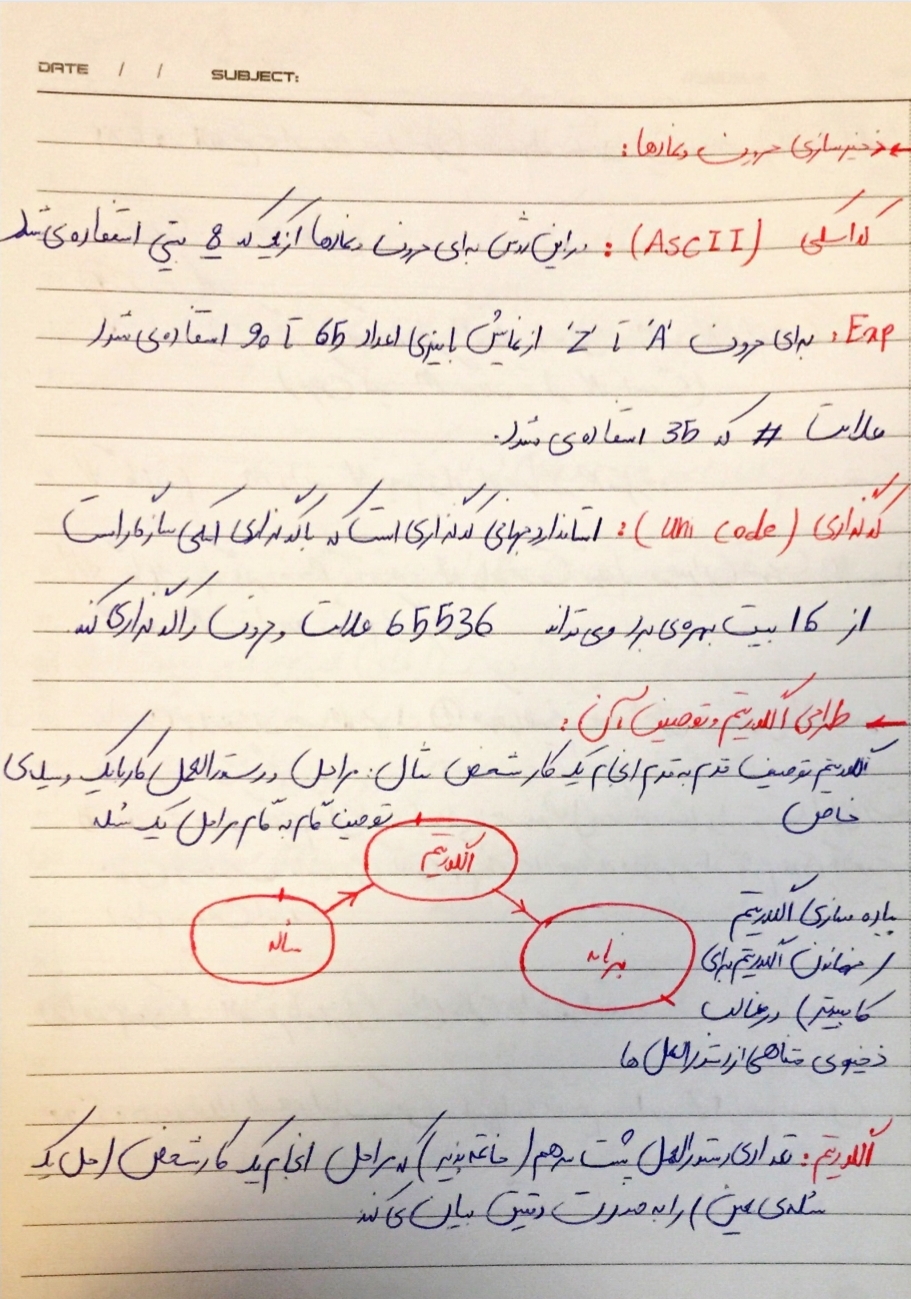 DATE / / SUBJECT:
ذخیره‌سازی حروف و نمادها:
کد اسکی (ASCII): در این روش برای حروف و نمادها از یک کد 8 بیتی استفاده می‌شود
Exp: برای حروف 'A' تا 'Z' از نمایش باینری اعداد 65 تا 90 استفاده می‌شود
علامت # کد 35 استفاده می‌شود.
کدگذاری (Uni code): استاندارد جهانی کدگذاری است که با کدگذاری اسکی سازگار است
از 16 بیت بهره می‌برد و می‌تواند 65536 علامت و حروف را کدگذاری کند
طراحی الگوریتم و توصیف آن:
الگوریتم توصیف قدم به قدم انجام یک کار مشخص مثال: مراحل و دستورالعمل کار با یک وسیله‌ی
خاص
توصیف گام به گام مراحل یک مسئله
الگوریتم
مسئله
برنامه
پیاده سازی الگوریتم
(فهماندن الگوریتم برای
کامپیوتر) در قالب
ذخیره‌ی متناهی از دستورالعمل ها
الگوریتم: تعدادی دستورالعمل پشت سر هم (خاتمه پذیر) که مراحل انجام یک کار مشخص (حل یک
مسئله‌ی معین) را به صورت دقیق بیان می‌کند